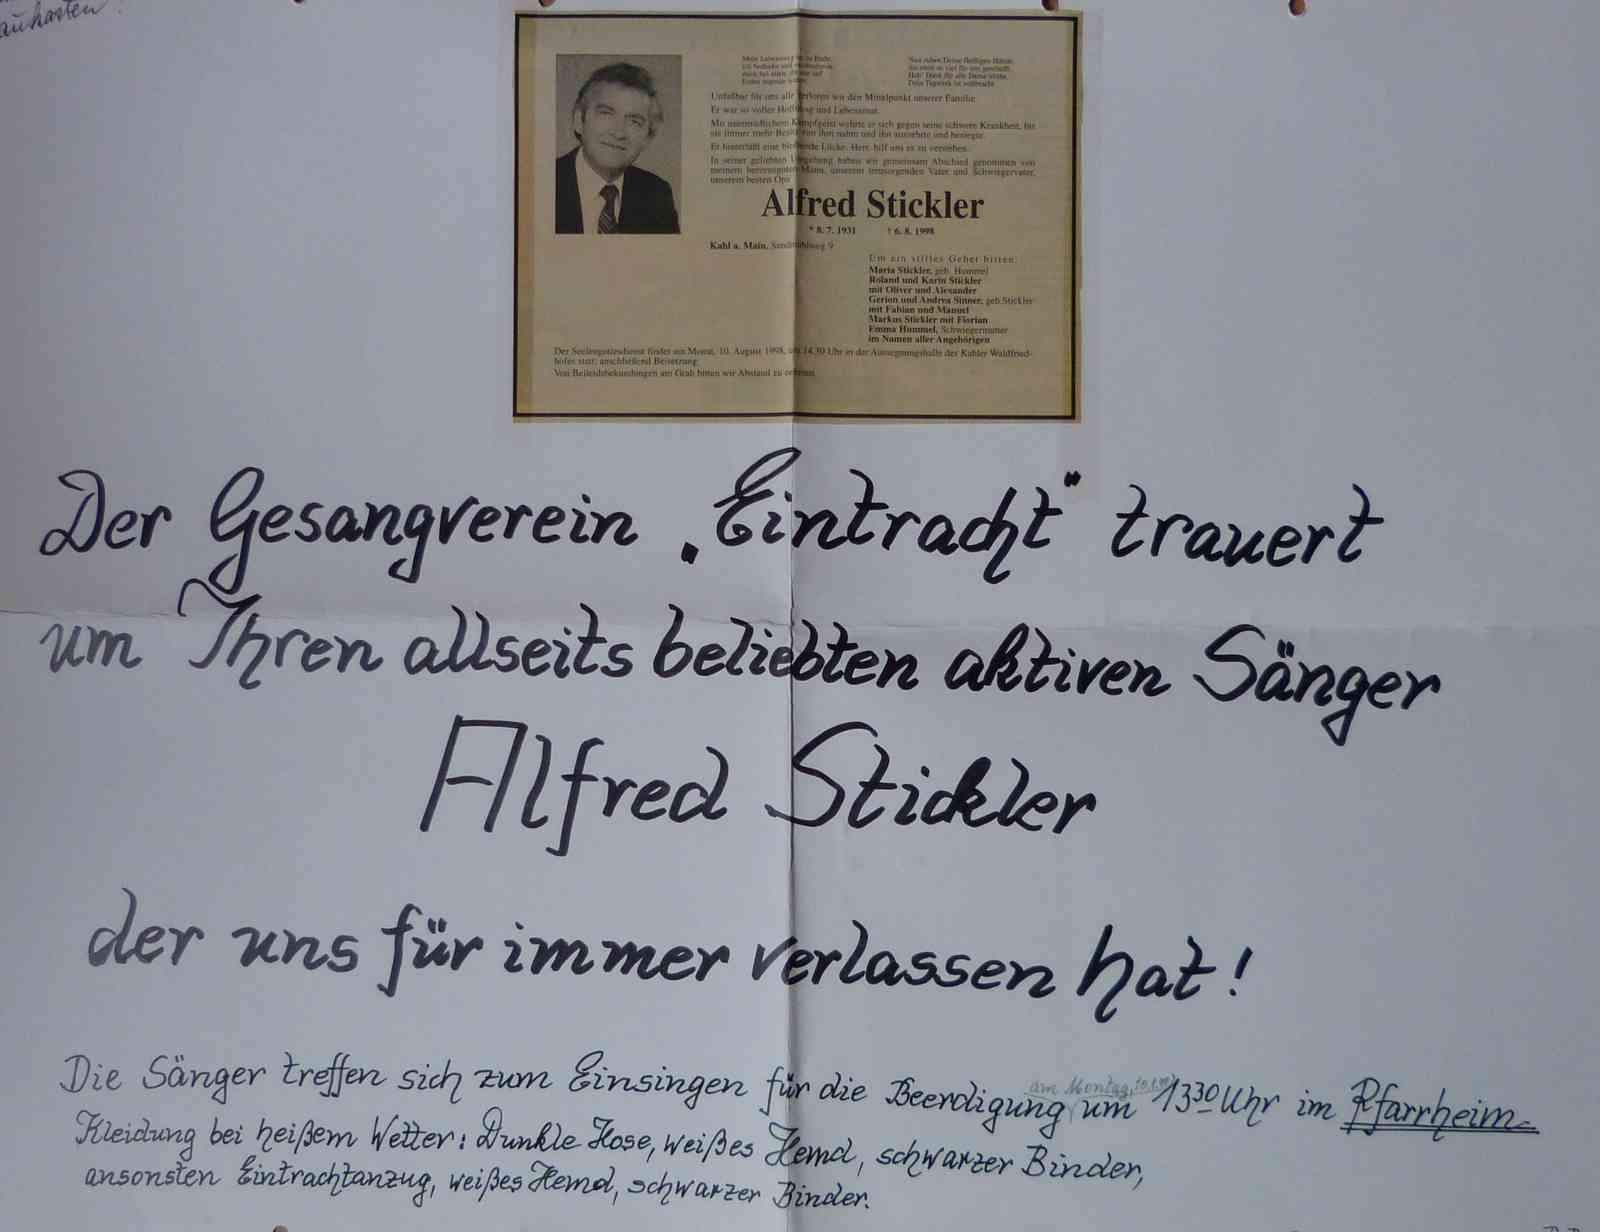 Mein Lebensweg ist zu Ende,
Nun ruhen Deine fleißigen Hände,
die einst so viel für uns geschafft.
Hab' Dank für alle Deine Mühe,
Dein Tagwerk ist vollbracht.
Unfaßbar für uns alle verloren wir den Mittelpunkt unserer Familie.
Er war so voller Hoffnung und Lebensmut.
Mit unermüdlichem Kampfgeist wehrte er sich gegen seine schwere Krankheit, bis
sie immer mehr Besitz von ihm nahm und ihn auszehrte und besiegte.
Er hinterläßt eine bleibende Lücke. Herr, hilf uns es zu verstehen.
In seiner geliebten Umgebung haben wir gemeinsam Abschied genommen von
meinem herzensguten Mann, unserem treusorgenden Vater und Schwiegervater,
unserem besten Opa
Alfred Stickler
* 8. 7. 1931 † 6. 8. 1998
Kahl a. Main, Sandmühlweg 9
Um ein stilles Gebet bitten:
Maria Stickler, geb. Hummel
Roland und Karin Stickler
mit Oliver und Alexander
Gerion und Andrea Sinner, geb. Stickler
mit Fabian und Manuel
Markus Stickler mit Florian
Emma Hummel, Schwiegermutter
im Namen aller Angehörigen
Der Seelengottesdienst findet am Montag, 10. August 1998, um 14.30 Uhr in der Aussegnungshalle des Kahler Waldfried-
hofes statt; anschließend Beisetzung.
Von Beileidsbekundungen am Grab bitten wir Abstand zu nehmen.
Der Gesangverein „Eintracht" trauert
um Ihren allseits beliebten aktiven Sänger
Alfred Stickler
der uns für immer verlassen hat!
Die Sänger treffen sich zum Einsingen für die Beerdigung am Montag, um 13³⁰ Uhr im Pfarrheim.
Kleidung bei heißem Wetter: Dunkle Hose, weißes Hemd, schwarzer Binder,
ansonsten Eintrachtanzug, weißes Hemd, schwarzer Binder.